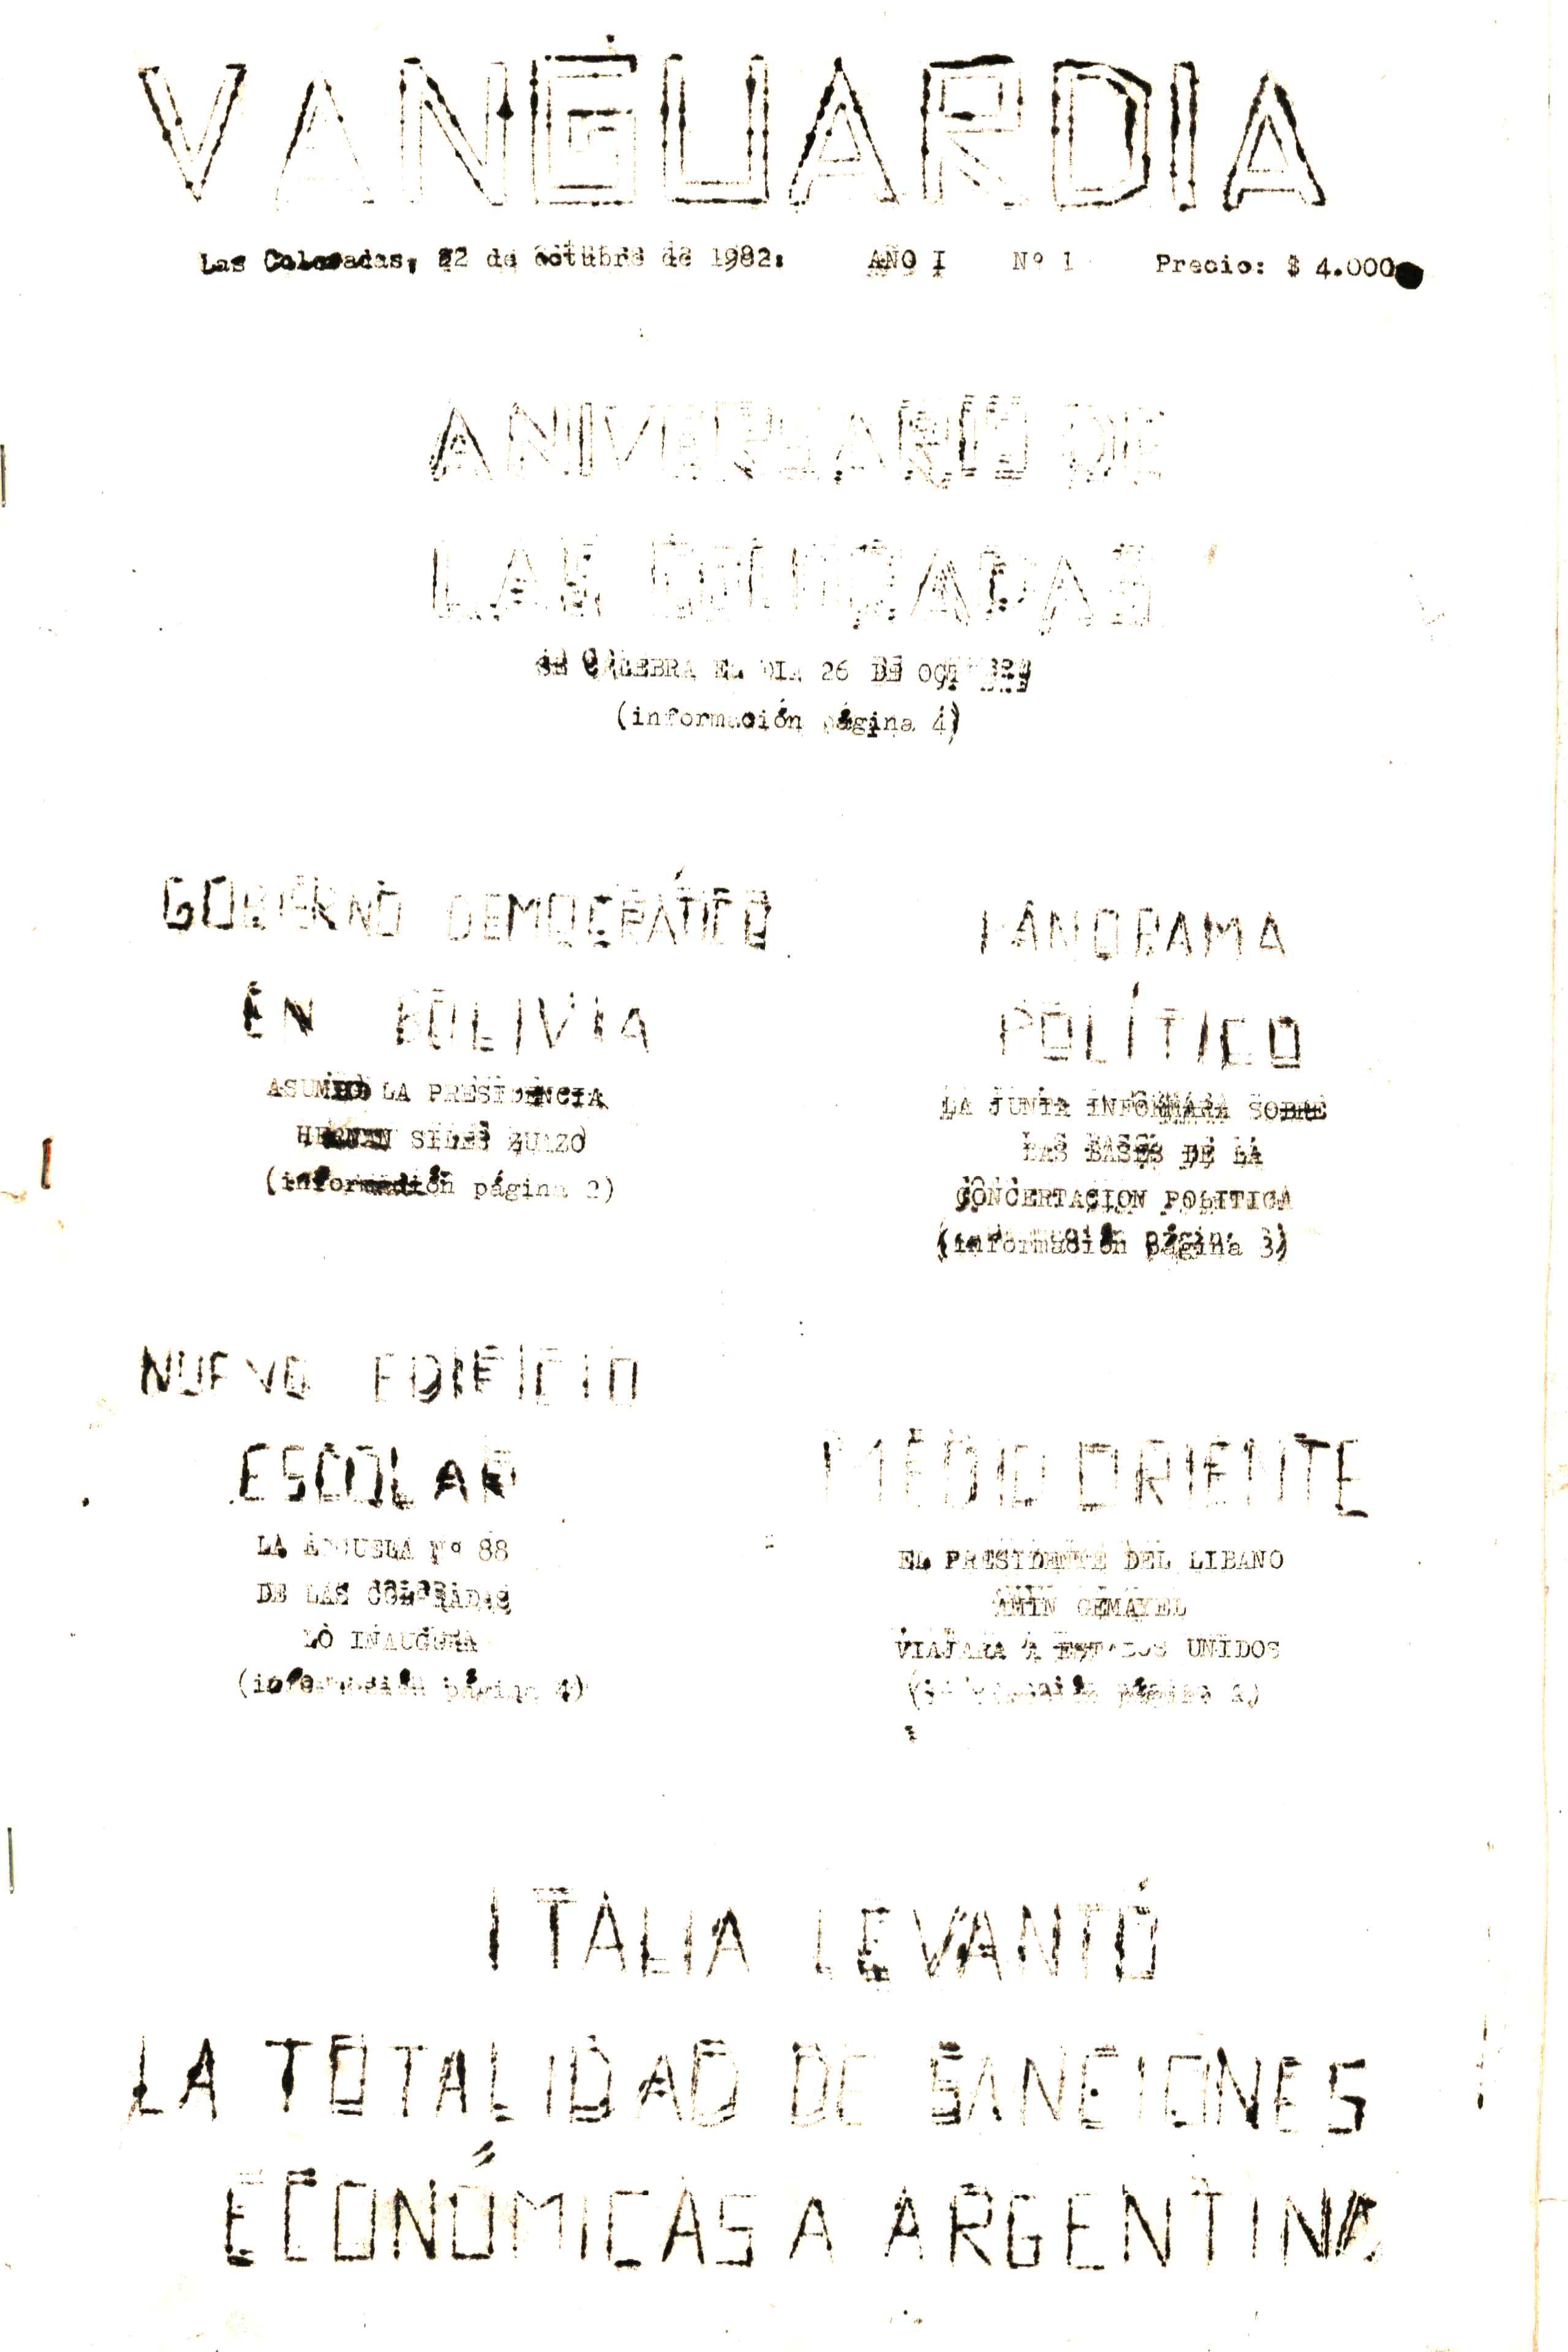 VANGUARDIA
Las Coloradas, 22 de octubre de 1982. AÑO I Nº 1 Precio: $ 4.000
ANIVERSARIO DE
LAS COLORADAS
SE CELEBRA EL DIA 26 DE OCTUBRE
(información página 4)
GOBIERNO DEMOCRÁTICO
EN BOLIVIA
ASUMIO LA PRESIDENCIA
HERNAN SILES ZUAZO
(información página 2)
PANORAMA
POLÍTICO
LA JUNTA INFORMARA SOBRE
LAS BASES DE LA
CONCERTACION POLITICA
(información página 3)
NUEVO EDIFICIO
ESCOLAR
LA ESCUELA Nº 88
DE LAS COLORADAS
LO INAUGURA
(información página 4)
MEDIO ORIENTE
EL PRESIDENTE DEL LIBANO
AMIN GEMAYEL
VIAJARA A ESTADOS UNIDOS
(información página 2)
ITALIA LEVANTÓ
LA TOTALIDAD DE SANCIONES
ECONÓMICAS A ARGENTINA